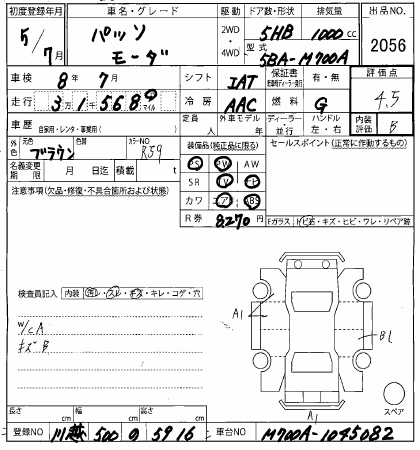 初度登録年月 車名・グレード 駆動 ドア数・形状 排気量 出品NO.
5/7月 パッソ モーダ 2WD・4WD 5HB 1000cc 2056
型式 5BA-M700A
車検 8年7月 シフト IAT 保証書 有・無 評価点
走行 3万1千568 マイル 冷房 AAC 燃料 G 4.5
車歴 自家用・レンタ・事業用( ) 定員 人 外車モデル年 ディーラー・並行 ハンドル 左・右 内装評価 B
外色 元色 ブラウン 色替 カラーNO R59 装備品(純正品に限る) セールスポイント(正常に動作するもの)
名義変更期限 月 日迄 積載 t PS PW AW
注意事項(欠品・修復・不具合箇所および状態) SR TV ナビ
カワ エアB ABS
R券 8270円 Fガラス(トビ石・キズ・ヒビ・ワレ・リペア跡
検査員記入 内装 汚レ・スレ・キズ・キレ・コゲ・穴
W/CA
キズB
A1
B1
A1
スペア
長さ cm 幅 cm 高さ cm
登録NO 川越 500 の 5916 車台NO M700A-1045082